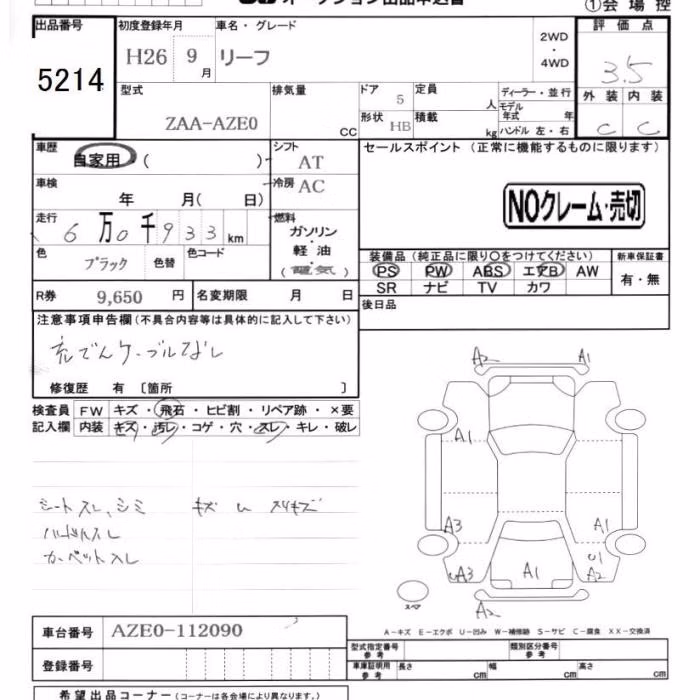 オークション出品申込書
①会場控
出品番号 初度登録年月 車名・グレード 評価点
5214 H26 9月 リーフ 2WD・4WD 3.5
型式 排気量 ドア 定員 ディーラー・並行 外装 内装
ZAA-AZE0 CC 5 人 モデル年式 年 C C
形状 HB 積載 kg ハンドル 左・右
車歴 自家用 ( ) シフト AT セールスポイント (正常に機能するものに限ります)
車検 年 月( 日) 冷房 AC
NOクレーム・売切
走行 6万0千933km 燃料 ガソリン・軽油(電気)
色 ブラック 色替 色コード
装備品 (純正品に限り○をつけてください) 新車保証書
PS PW ABS エアB AW 有・無
SR ナビ TV カワ
R券 9,650円 名変期限 月 日
後日品
注意事項申告欄(不具合内容等は具体的に記入して下さい)
充でんケーブルなし
修復歴 有 〔箇所 〕
検査員 FW キズ・飛石・ヒビ割・リペア跡・×要
記入欄 内装 キズ・汚レ・コゲ・穴・スレ・キレ・破レ
シートスレ、シミ
ハンドルスレ
カーペットスレ
キズ U スリキズ
A2 A1
A1
A3 A1
U1
UA3 A1 A2
スペア
A2
A-キズ E-エクボ U-凹み W-補修跡 S-サビ C-腐食 XX-交換済
車台番号 AZE0-112090
登録番号
型式指定番号 参考 類別区分番号 参考
車庫証明用 参考 長さ cm 幅 cm 高さ cm
希望出品コーナー (コーナーは各会場により異なります。)